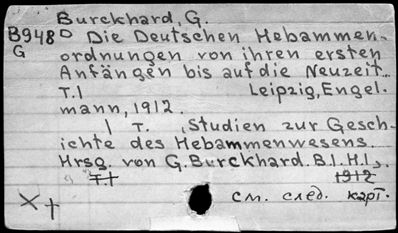 Burckhard, G.
B948 D Die Deutschen Hebammen-
G ordnungen von ihren ersten
Anfängen bis auf die Neuzeit..
T.I Leipzig, Engel-
mann, 1912.
1 T. , Studien zur Gesch-
ichte des Hebammenwesens.
Hrsg. von G. Burckhard. B.I. H.I.
T.I 1912
см. след. карт.